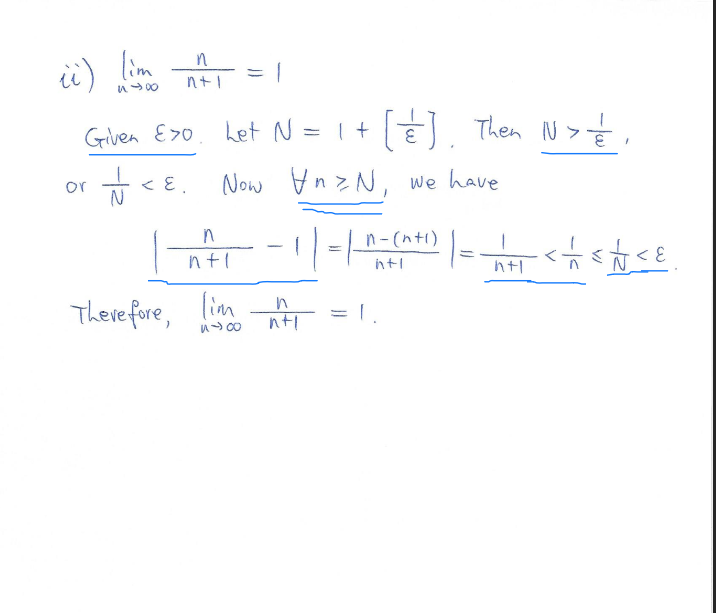 ii) lim n→∞ n/(n+1) = 1
Given ε>0. Let N = 1 + [1/ε]. Then N > 1/ε,
or 1/N < ε. Now ∀n≥N, we have
|n/(n+1) - 1| = |(n-(n+1))/(n+1)| = 1/(n+1) < 1/n ≤ 1/N < ε.
Therefore, lim n→∞ n/(n+1) = 1.